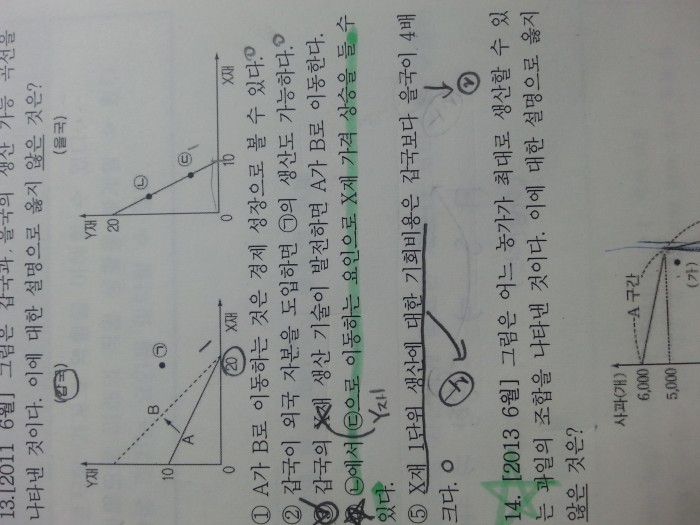 13.[2011 6월] 그림은 갑국과 을국의 생산 가능 곡선을
나타낸 것이다. 이에 대한 설명으로 옳지 않은 것은?
(갑국)
(을국)
Y재
10
A
B
㉠
0
20
X재
Y재
20
㉡
㉢
0
10
X재
① A가 B로 이동하는 것은 경제 성장으로 볼 수 있다.
② 갑국이 외국 자본을 도입하면 ㉠의 생산도 가능하다.
③ 갑국의 X재 생산 기술이 발전하면 A가 B로 이동한다.
④ ㉡에서 ㉢으로 이동하는 요인으로 X재 가격 상승을 들 수
있다.
Y재
⑤ X재 1단위 생산에 대한 기회비용은 갑국보다 을국이 4배
크다.
14. [2013 6월] 그림은 어느 농가가 최대로 생산할 수 있
는 과일의 조합을 나타낸 것이다. 이에 대한 설명으로 옳지
않은 것은?
사과(개)
6,000
5,000
A 구간
(가)